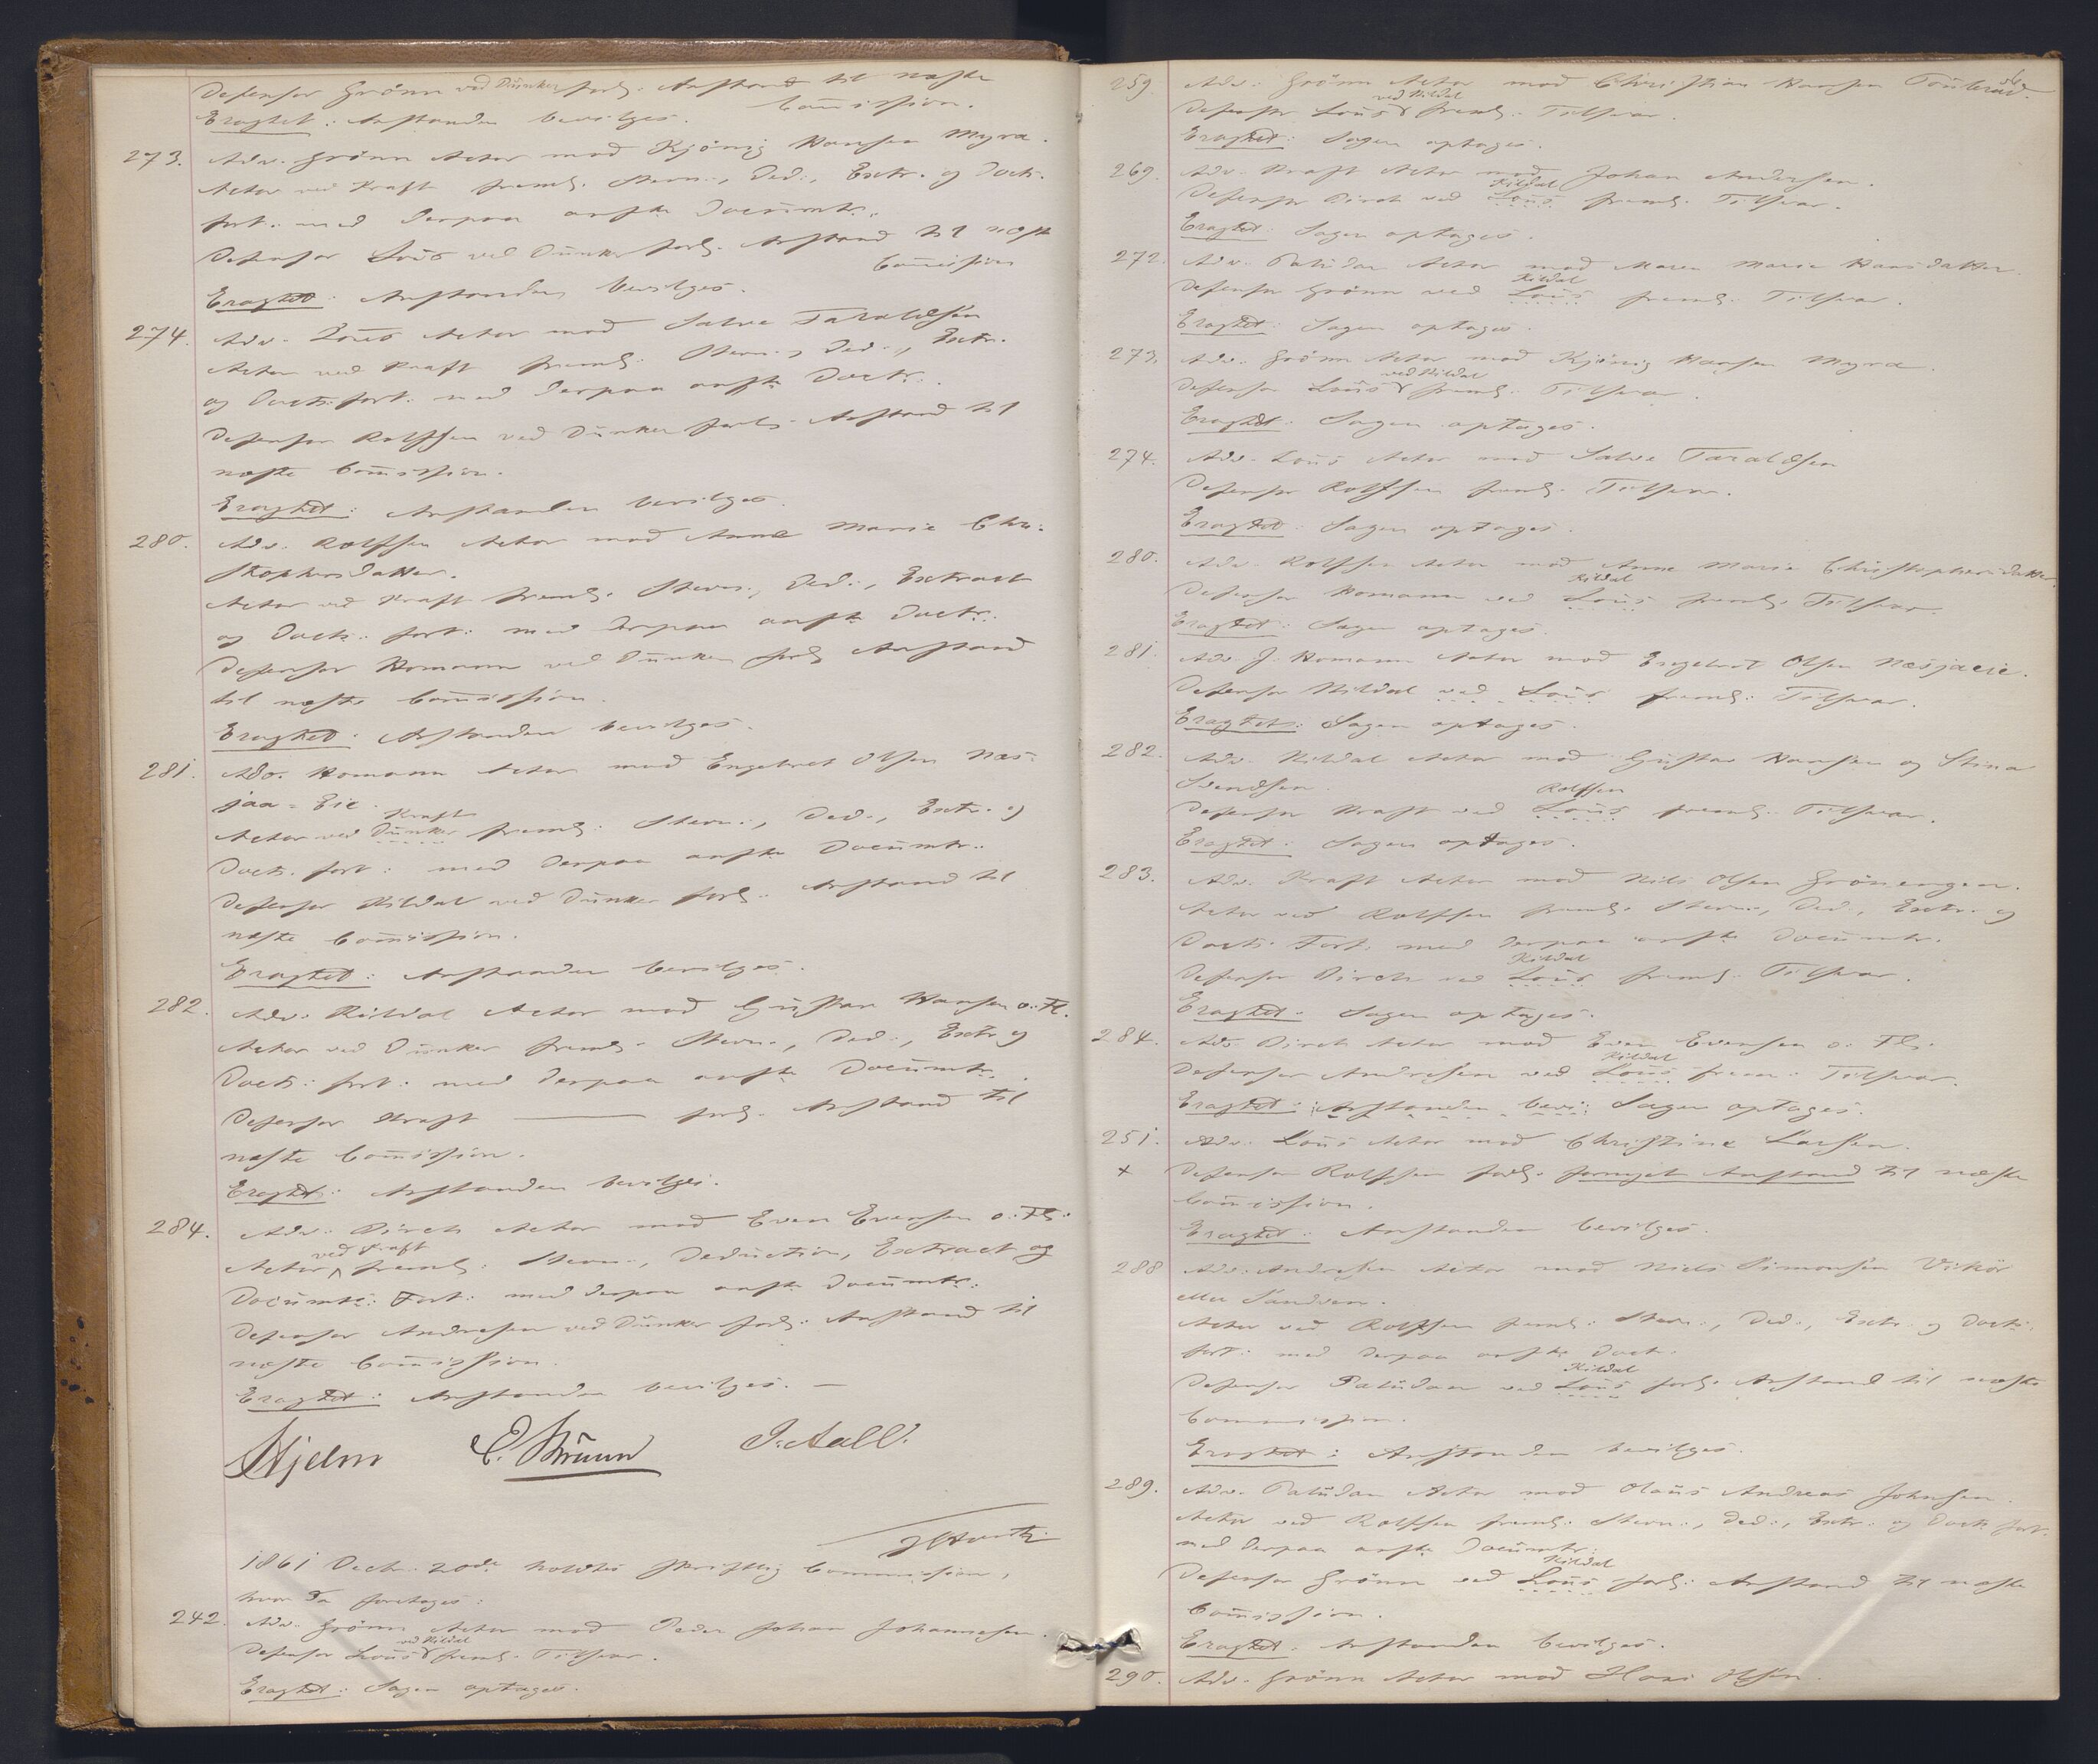 Defensor Grönn ved Dunker forl. Anstand til næste
Commission.
Eragtet: Anstanden bevilges.
273. Adv. Grönn Actor mod Kjönig Hansen Myra.
Actor ved Kraft freml. Stevn., Ded., Extr. og Docts.
fort. med derpaa anfte Documtr.
Defensor Lous ved Dunker forl. Anstand til næste
Commission
Eragtet: Anstanden bevilges.
274. Adv. Lous Actor mod Salve Taraldsen
Actor ved Kraft freml. Stevn., Ded., Extr.
og Docts. fort. med derpaa anfte Doctr.
Defensor Rolfsen ved Dunker forl. Anstand til
næste Commission.
Eragtet: Anstanden bevilges.
280. Adv. Rolfsen Actor mod Anne Marie Chri-
stophersdatter.
Actor ved Kraft freml. Stevn., Ded., Extract
og Docts. fort. med derpaa anfte Doctr.
Defensor Homann ved Dunker forl. Anstand
til næste Commission.
Eragtet: Anstanden bevilges.
281. Adv. Homann Actor mod Engebret Olsen Næs-
jaa-Eie.
Kraft
Actor ved Dunker freml. Stevn., Ded., Extr. og
Docts. fort. med derpaa anfte Documtr.
Defensor Kildal ved Dunker forl. Anstand til
næste Commission.
Eragtet: Anstanden bevilges.
282. Adv. Kildal Actor mod Gustav Hansen o. Fl.
Actor ved Dunker freml. Stevn., Ded., Extr og
Docts. fort. med derpaa anfte Documtr.
Defensor Kraft ——— forl. Anstand til
næste Commission.
Eragtet: Anstanden bevilges.
284. Adv. Birch Actor mod Even Evensen o. Fl.
ved Kraft
Actor freml. Stevn., Deduction, Extract og
Documts. Fort. med derpaa anfte Documtr.
Defensor Andresen ved Dunker forl. Anstand til
næste Commission.
Eragtet: Anstanden bevilges. —
Hjelm E. Bruun J. Aall.
1861 Decbr. 20de holdtes skriftlig Commission,
hvor da foretoges:
242. Adv. Grönn Actor mod Peder Johan Johannesen.
ved Kildal
Defensor Lous freml. Tilsvar.
Eragtet: Sagen optages.
259. Adv. Grönn Actor mod Christian Hansen
ved Kildal
Defensor Lous freml. Tilsvar.
Eragtet: Sagen optages.
269. Adv. Kraft Actor mod Johan Andersen.
Kildal
Defensor Birch ved Lous freml. Tilsvar.
Eragtet: Sagen optages.
272. Adv. Paludan Actor mod Maren Marie Hansdatter.
Kildal
Defensor Grönn ved Lous freml. Tilsvar.
Eragtet: Sagen optages.
273. Adv. Grönn Actor mod Kjönig Hansen Myra.
ved Kildal
Defensor Lous freml. Tilsvar.
Eragtet: Sagen optages.
274. Adv. Lous Actor mod Salve Taraldsen
Defensor Rolfsen freml. Tilsvar.
Eragtet: Sagen optages.
280. Adv. Rolfsen Actor mod Anne Marie Christophersdatter.
Kildal
Defensor Homann ved Lous freml. Tilsvar.
Eragtet: Sagen optages.
281. Adv. J. Homann Actor mod Engebret Olsen Næsjaeie.
Defensor Kildal ved Lous freml. Tilsvar.
Eragtet: Sagen optages.
282. Adv. Kildal Actor mod Gustav Hansen og Stina
Svendsen.
Rolfsen
Defensor Kraft ved Lous freml. Tilsvar.
Eragtet: Sagen optages.
283. Adv. Kraft Actor mod Nils Olsen Grönengen.
Actor ved Rolfsen freml. Stevn., Ded., Extr. og
Docts. Fort. med derpaa anfte Documtr.
Kildal
Defensor Birch ved Lous freml. Tilsvar.
Eragtet: Sagen optages.
284. Adv. Birch Actor mod Even Evensen o. Fl.
Kildal
Defensor Andresen ved Lous frem. Tilsvar.
Eragtet: Anstanden bevi: Sagen optages.
251. Adv. Lous Actor mod Christine Larsen.
x Defensor Rolfsen forl. fornyet Anstand til næste
Commission.
Eragtet: Anstanden bevilges.
288 Adv. Andresen Actor mod Niels Simonsen Vikör
eller Sandven.
Actor ved Rolfsen freml. Stevn., Ded., Extr. og Docts.
fort. med derpaa anfte Doctr.
Kildal
Defensor Paludan ved Lous forl. Anstand til næste
Commission.
Eragtet: Anstanden bevilges.
289. Adv. Paludan Actor mod Olaus Andreas Johnsen.
Actor ved Rolfsen freml. Stevn., Ded., Extr. og Docts fort.
med derpaa anfte Documtr.
Kildal
Defensor Grönn ved Lous forl. Anstand til næste
Commission.
Eragtet: Anstanden bevilges.
290. Adv. Grönn Actor mod Hans Olsen